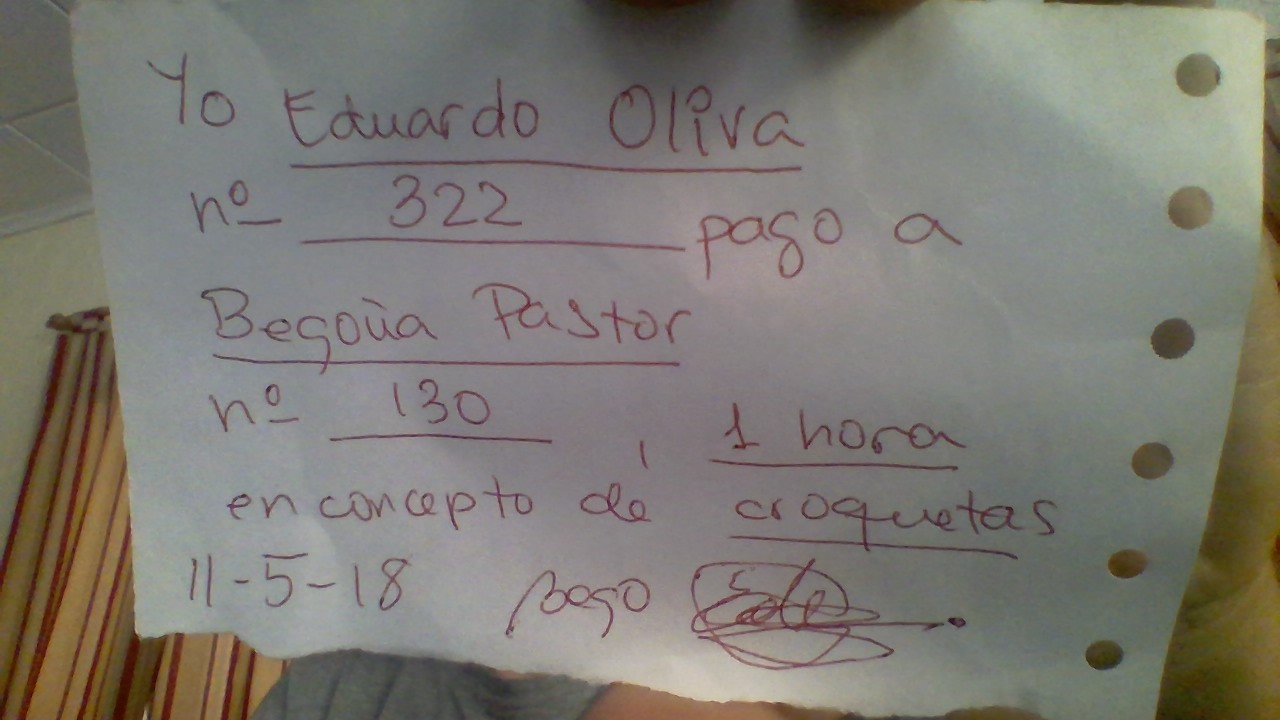 Yo Eduardo Oliva
nº 322 pago a
Begoña Pastor
nº 130, 1 hora
en concepto de croquetas
11-5-18 Bego Edu